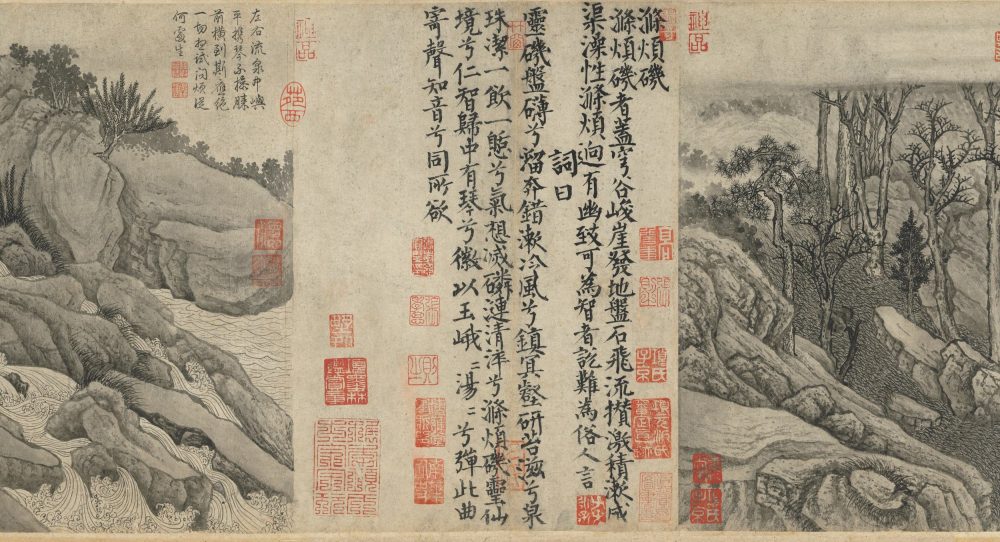 滌煩磯
滌煩磯者蓋穹谷峻崖發地盤石飛流攢激積漱成
渠澡性滌煩迥有幽致可為智者說難為俗人言
詞曰
靈磯盤礴兮溜奔錯漱冷風兮鎮冥壑研苔滋兮泉
珠潔一飲一憩兮氣想滅磷漣清淬兮滌煩磯靈仙
境兮仁智歸中有琴兮徽以玉峨〻湯〻兮彈此曲
寄聲知音兮同所欲
左右流泉卉嶼
平携琴不撫膝
前橫到斯應絶
一切想試問煩從
何處生